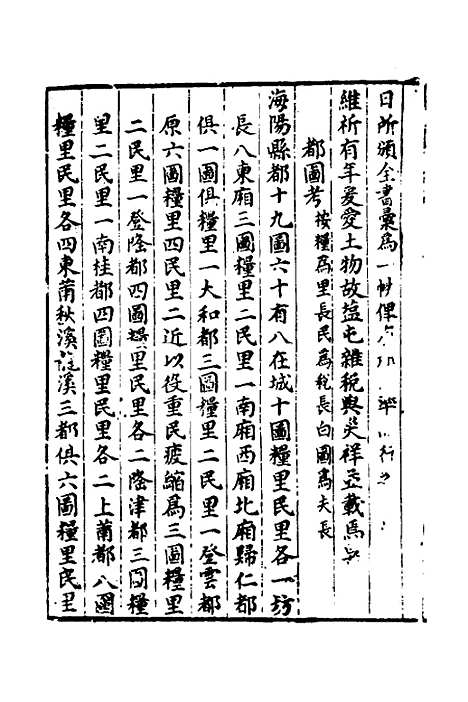 日所頒全書彙為一帙俾
維祈有年爰愛土物故塩屯雜稅與災祥並載焉
都圖考 按糧為里長民為稅長白圖為夫長
海陽縣都十九圖六十有八在城十圖糧里民里各一坊
長八東廂三圖糧里二民里一南廂西廂北廂歸仁都
俱一圖俱糧里一大和都三圖糧里二民里一登雲都
原六圖糧里四民里二近以役重民疲縮為三圖糧里
二民里一登隆都四圖糧里民里各二隆津都三圖糧
里二民里一南桂都四圖糧里民里各二上莆都八圖
糧里民里各四東莆秋溪溪三都俱六圖糧里民里